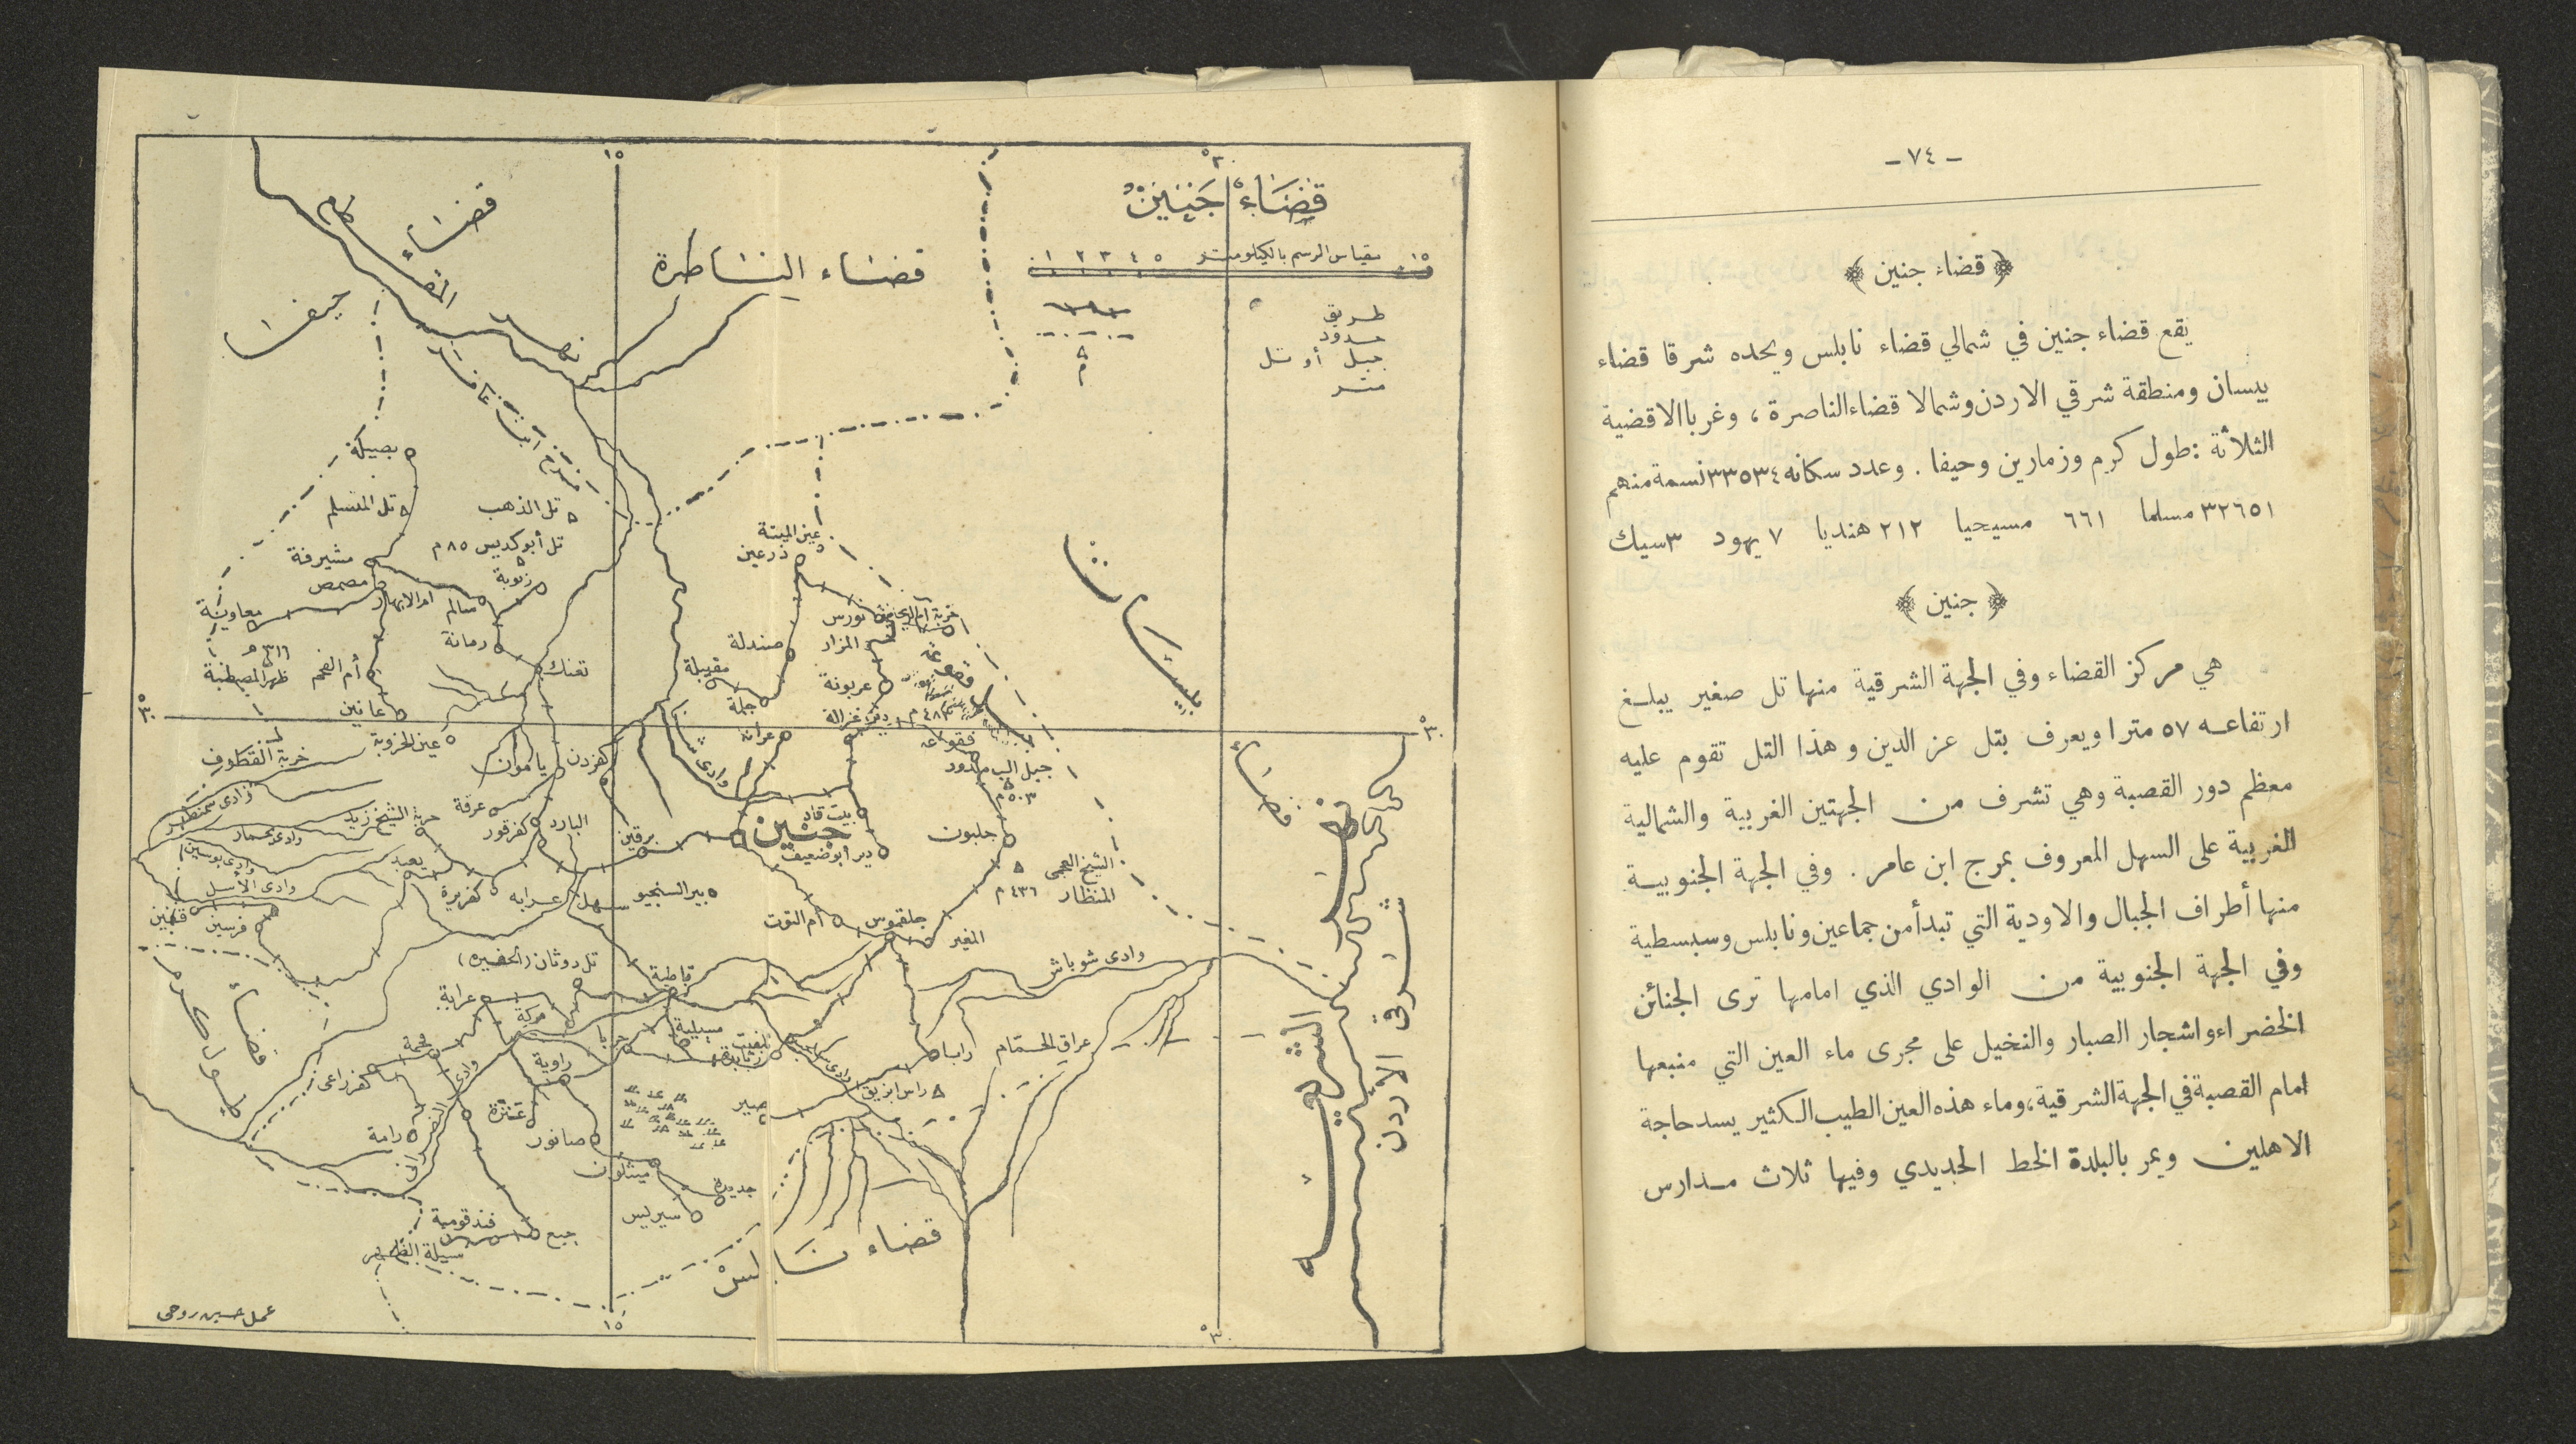 - ٧٤ -
﴿ قضاء جنين ﴾
يقع قضاء جنين في شمالي قضاء نابلس ويحده شرقا قضاء
بيسان ومنطقة شرقي الاردن وشمالا قضاء الناصرة ، وغربا الاقضية
الثلاثة : طول كرم وزمارين وحيفا . وعدد سكانه ٣٣٥٣٤ نسمة منهم
٣٢٦٥١ مسلما ٦٦١ مسيحيا ٢١٢ هنديا ٧ يهود ٣ سيك
﴿ جنين ﴾
هي مركز القضاء وفي الجهة الشرقية منها تل صغير يبلغ
ارتفاعه ٥٧ مترا ويعرف بتل عز الدين وهذا التل تقوم عليه
معظم دور القصبة وهي تشرف من الجهتين الغربية والشمالية
الغربية على السهل المعروف بمرج ابن عامر . وفي الجهة الجنوبية
منها أطراف الجبال والاودية التي تبدأ من جماعين ونابلس وسبسطية
وفي الجهة الجنوبية من الوادي الذي امامها ترى الجنائن
الخضراء واشجار الصبار والنخيل على مجرى ماء العين التي منبعها
امام القصبة في الجهة الشرقية ، وماء هذه العين الطيب الكثير يسد حاجة
الاهلين ويمر بالبلدة الخط الحديدي وفيها ثلاث مدارس
قضاء جنين
مقياس الرسم بالكيلومتر
٠ ١ ٢ ٣ ٤ ٥
طريق
حدود
جبل أو تل
متر
م
١٥
٣٠
قضاء حيفا
نهر المقطع
قضاء الناصرة
مرج ابن عامر
بصيلة
تل المتسلم
تل الذهب
تل أبو كديس ٨٥ م
زبوبة
مشيرفة
مصمص
معاوية
ام الابهار
سالم
رمانة
تعنك
أم الفحم
عانين
عين الميتة
زرعين
نورس
المزار
صندلة
مقيبلة
جلمة
عربونة
دير غزالة
عرانة
فقوعه
قضاء بيسان
عين الخروبة
خربة القطوف
يامون
كفردن
وادي سمنطار
خربة الشيخ زيد
عرقة
كفرقود
البارد
برقين
جنين
بيت قاد
دير أبو ضعيف
جلبون
٥٠٣ م
الشيخ العجمي
المنظار
٤٣٦ م
يعبد
وادي الأسل
كفريرة
سهل عرابه
بير السنجيو
أم التوت
جلقموس
المغير
فرسين
قفين
تل دوثان (الحفيره)
قباطية
وادي شوباش
عرابة
مركة
جربا
مسيلية
تلفيت
زبابدة
رابا
عراق الحمام
فحمة
كفر راعي
زاوية
عنزة
صانور
صير
راس ابزيق
رامة
ميثلون
جديدة
سيريس
جبع
فندقومية
سيلة الظهر
قضاء طول كرم
قضاء نابلس
نهر الشريعة
شرقي الأردن
عمل حسين روحي